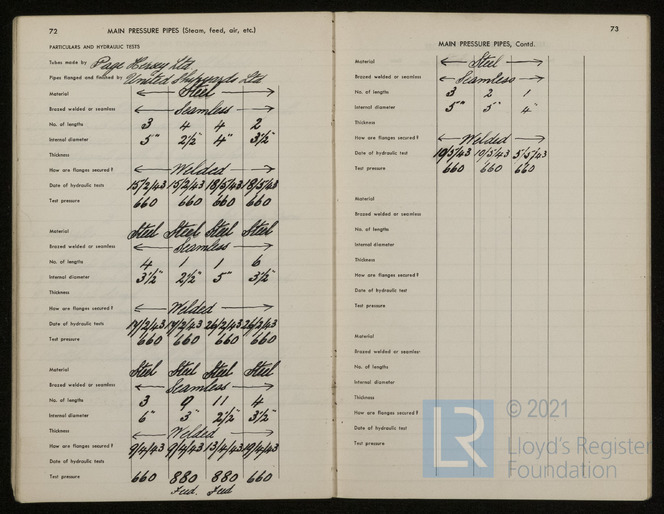 72 MAIN PRESSURE PIPES (Steam, feed, air, etc.)
PARTICULARS AND HYDRAULIC TESTS
Tubes made by Page Hersey Ltd.
Pipes flanged and finished by United Shipyards Ltd
Material ← Steel →
Brazed welded or seamless ← Seamless →
No. of lengths 3 4 4 2
Internal diameter 5" 2½" 4" 3½"
Thickness
How are flanges secured? ← Welded →
Date of hydraulic tests 15/2/43 15/2/43 18/5/43 18/5/43
Test pressure 660 660 660 660
Material Steel Steel Steel Steel
Brazed welded or seamless ← Seamless →
No. of lengths 4 1 1 6
Internal diameter 3½" 2½" 5" 3½"
Thickness
How are flanges secured? ← Welded →
Date of hydraulic tests 17/2/43 17/2/43 26/2/43 26/2/43
Test pressure 660 660 660 660
Material Steel Steel Steel Steel
Brazed welded or seamless ← Seamless →
No. of lengths 3 9 11 4
Internal diameter 6" 3" 2½" 3½"
Thickness
How are flanges secured? ← Welded →
Date of hydraulic tests 9/4/43 9/4/43 13/4/43 19/4/43
Test pressure 660 880 880 660
Feed. Feed
73
MAIN PRESSURE PIPES, Contd.
Material ← Steel →
Brazed welded or seamless ← Seamless →
No. of lengths 3 2 1
Internal diameter 5" 5" 4"
Thickness
How are flanges secured? ← Welded →
Date of hydraulic test 19/5/43 10/5/43 5/5/43
Test pressure 660 660 660
Material
Brazed welded or seamless
No. of lengths
Internal diameter
Thickness
How are flanges secured?
Date of hydraulic test
Test pressure
Material
Brazed welded or seamless
No. of lengths
Internal diameter
Thickness
How are flanges secured?
Date of hydraulic test
Test pressure
LR © 2021
Lloyd's Register
Foundation